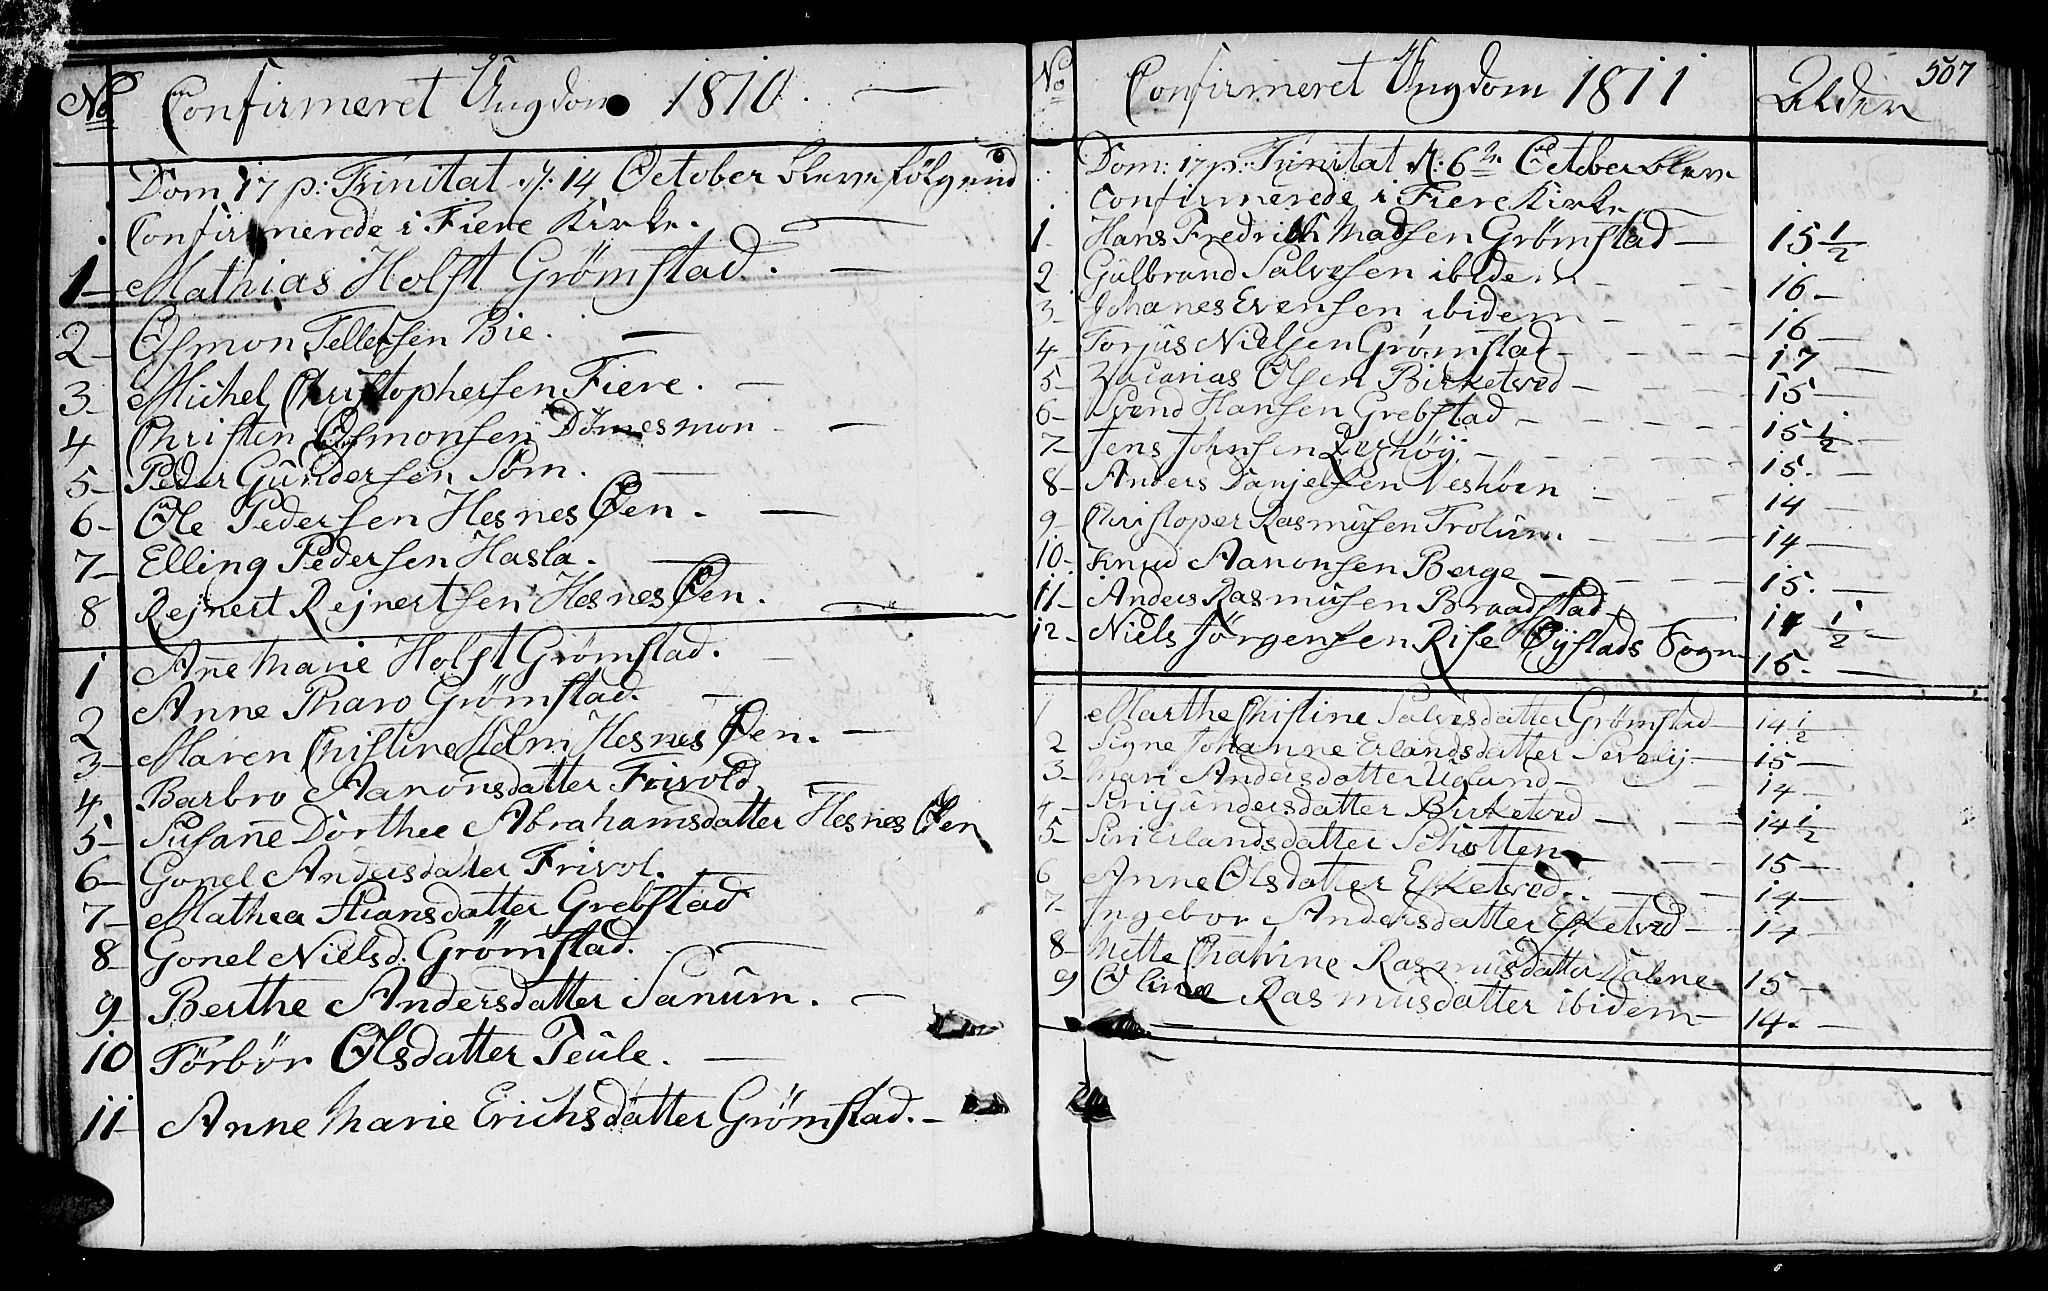 No Confirmeret Ungdom 1810. —
Dom 17 p: Trinitat d: 14 October bleve følgend
Confirmerede i Fiere Kirke.
1 — Mathias Holst Grømstad. —
2 — Osmon Tellefsen Bie. —
3 — Michel Christophersen Fiere. —
4 Christen Osmonsen Dømesmon —
5 — Peder Gundersen Søm. —
6 — Ole Pedersen HesnesØen. —
7 — Elling Pedersen Hasla. —
8 Rejnert Rejnertsen HesnesØen. —
1 Añe Marie Holst Grømstad. —
2 Anne Pharo Grømstad. —
3 — Maren Christine Holm Hesnes Øen. —
4 Barbro Aanonsdatter Frivold —
5 — Susañe Dorthee Abrahamsdatter HesnesØen
6 — Gonel Andersdatter Frivol. —
7 — Mathea Stiansdatter Grebstad
8 — Gonel Nielsd. Grømstad. —
9 Berthe Andersdatter Sanum. —
10 Törbör Olsdatter Teule. —
11 — Anne Marie Erichsdatter Grømstad. —
No Confirmeret Ungdom 1811 Alder 507
Dom: 17 p: Trinitat d: 6te October bleve
Confirmerede i Fiere Kirke
1 Hans Fredrich Madsen Grømstad — 15 1/2
2 Gulbrand Salvesen ibidem — 16 —
3 — Johanes Evensen ibidem — 16 —
4 — Torjus Nielsen Grømstad — 17 —
5 — Zacarias Olsen Birketved — 15 —
6 — Svend Hansen Grebstad — 15 1/2 —
7 — Jens Johnsen — 15. —
8 — Anders Danjelsen Veshöen — 14 —
9 — Christoper Rasmusen Trolum. 14 —
10 — Knud Aanonsen Berge — 15. —
11 — Anders Rasmusen Braadstad — 14 1/2 —
12 — Niels Jörgensen Rise Øjstads Sogn — 15. —
1 Marthe Christine Salvesdatter Grømstad — 14 1/2
2 Signe Johanne Erlandsdatter — 15 —
3 — Mari Andersdatter Uglund — 14 —
4 — Siri Gundersdatter Birketved — 14 1/2
5 — Siri Erlandsdatter Schotten — 15 —
6 Anne Olsdatter Esketved. — 14 —
7 — Ingebor Andersdatter Esketved — 14 —
8 — Mette Chatrine Rasmusdatter Dalene 15 —
9 Oline Rasmusdatter ibidem — 14. —